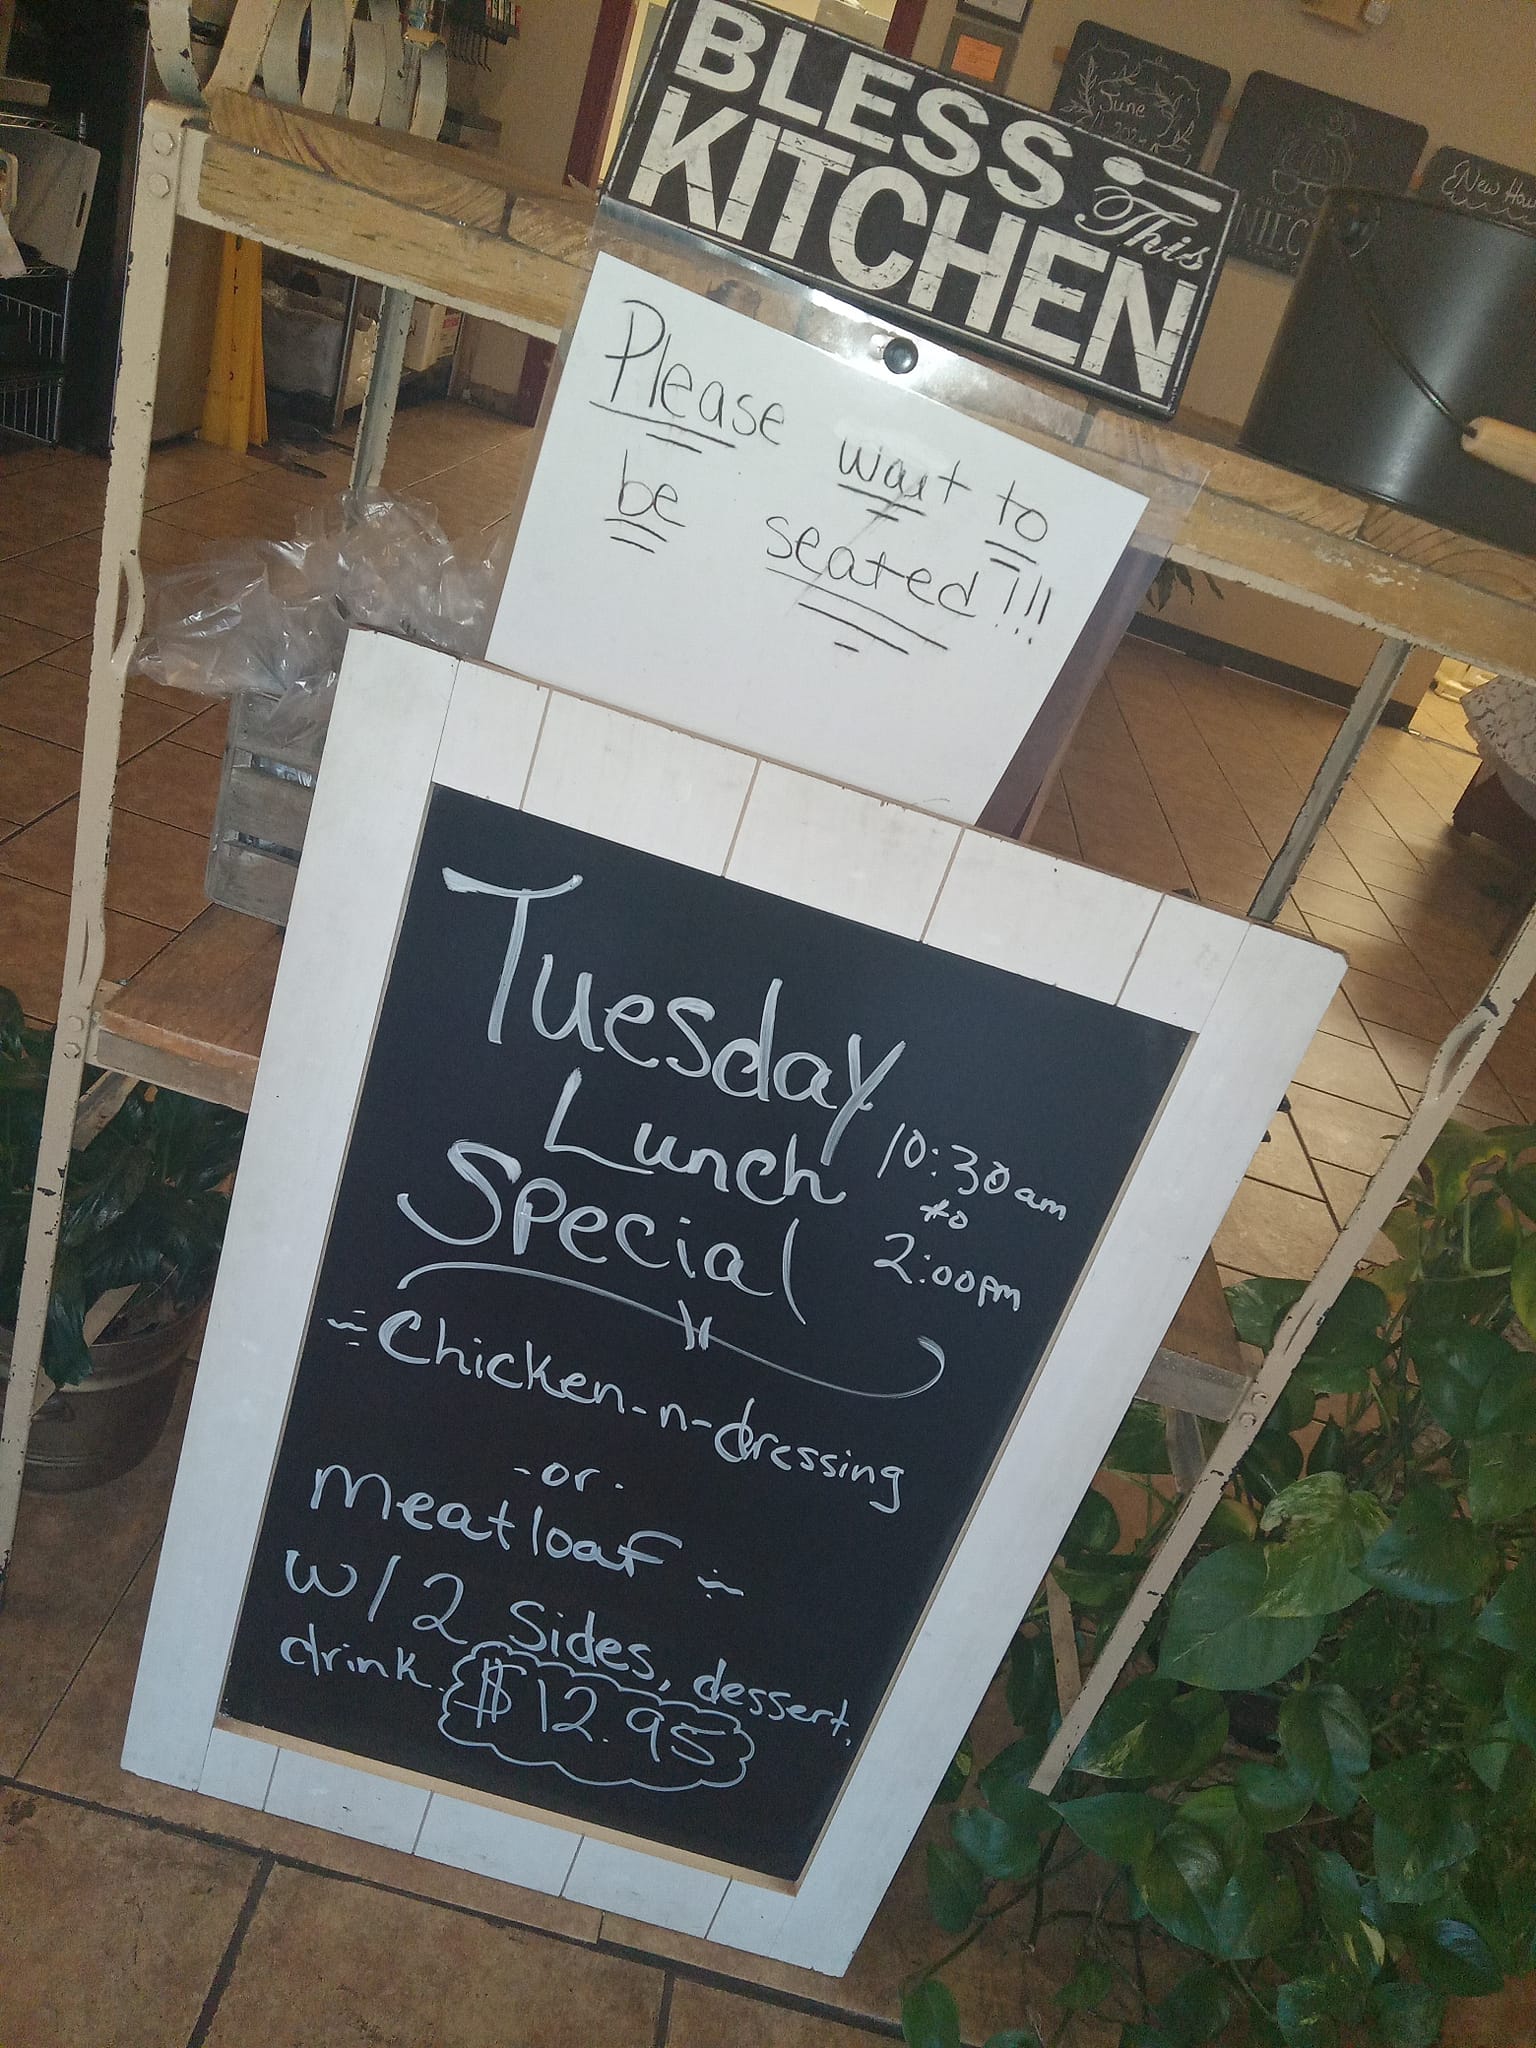 BLESS This
KITCHEN
June
New
Please wait to
be seated!!!
Tuesday
Lunch
Special
10:30am
to
2:00pm
Chicken-n-dressing
-or-
meatloaf
w/ 2 Sides, dessert,
drink. $12.95